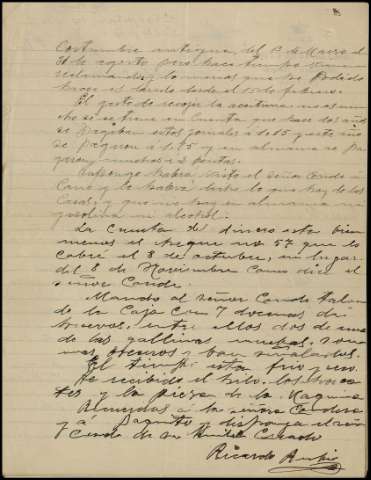 Costumbre antigua, del 1º de Marzo al
31 de agosto pero hace tiempo viene
reclamando y lo menos que he podido
hacer es darselo desde el 15 de febrero.
El gasto de recoger la aceituna no es mu-
cho si se tiene en cuenta que hace dos años
se pagaban estos jornales á 1,25 y este año
se pagan á 1,75 y en almania se pa-
garon muchos á 2 pesetas.
Supongo habra visto el señor Conde á
Cano y le habra dicho lo que hay de las
Casas, y que no hay en almania ni
gasolina ni alcohol.
La Cuenta de dinero esta bien
menos el cheque no 57 que lo
cobré el 8 de octubre, en lugar
del 8 de Noviembre como dice el
señor Conde.
Mando al señor Conde talon
de la Caja con 7 docenas de
huevos, entre ellos dos de una
de las gallinas nuevas, son
mas oscuros y van señalados.
El tiempo esta frio y
He recibido el hilo, los
y la pieza de la Maquina
Recuerdos á la señora Condesa
y á Paquito y disponga el señor
Conde de su Humilde Criado
Ricardo Rubio